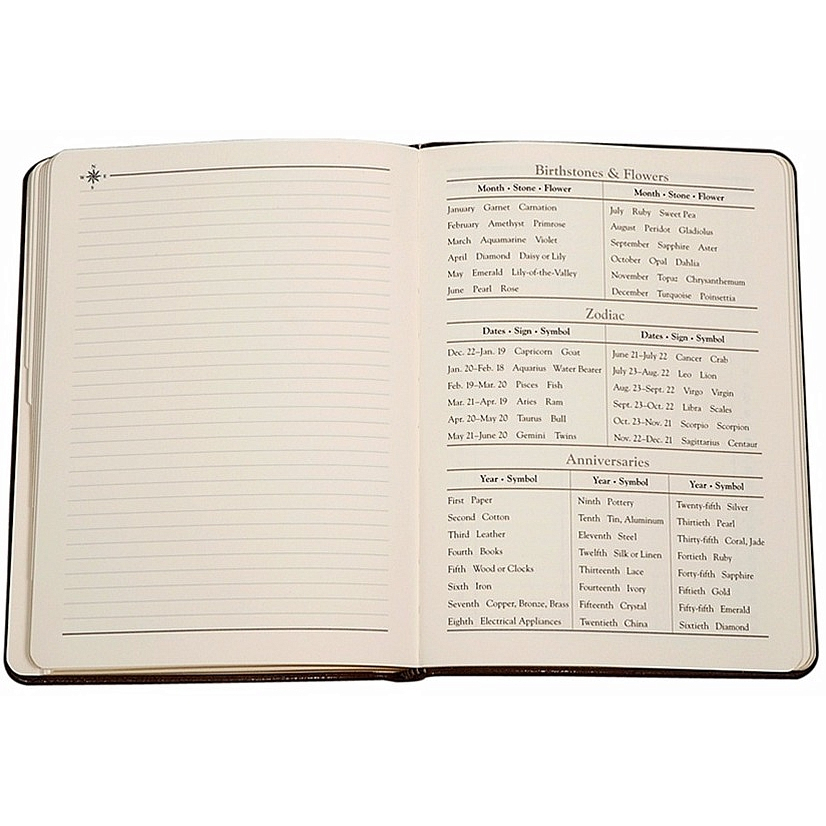 N
W E
S
Birthstones & Flowers
Month • Stone • Flower
January Garnet Carnation
February Amethyst Primrose
March Aquamarine Violet
April Diamond Daisy or Lily
May Emerald Lily-of-the-Valley
June Pearl Rose
Month • Stone • Flower
July Ruby Sweet Pea
August Peridot Gladiolus
September Sapphire Aster
October Opal Dahlia
November Topaz Chrysanthemum
December Turquoise Poinsettia
Zodiac
Dates • Sign • Symbol
Dec. 22–Jan. 19 Capricorn Goat
Jan. 20–Feb. 18 Aquarius Water Bearer
Feb. 19–Mar. 20 Pisces Fish
Mar. 21–Apr. 19 Aries Ram
Apr. 20–May 20 Taurus Bull
May 21–June 20 Gemini Twins
Dates • Sign • Symbol
June 21–July 22 Cancer Crab
July 23–Aug. 22 Leo Lion
Aug. 23–Sept. 22 Virgo Virgin
Sept. 23–Oct. 22 Libra Scales
Oct. 23–Nov. 21 Scorpio Scorpion
Nov. 22–Dec. 21 Sagittarius Centaur
Anniversaries
Year • Symbol
First Paper
Second Cotton
Third Leather
Fourth Books
Fifth Wood or Clocks
Sixth Iron
Seventh Copper, Bronze, Brass
Eighth Electrical Appliances
Year • Symbol
Ninth Pottery
Tenth Tin, Aluminum
Eleventh Steel
Twelfth Silk or Linen
Thirteenth Lace
Fourteenth Ivory
Fifteenth Crystal
Twentieth China
Year • Symbol
Twenty-fifth Silver
Thirtieth Pearl
Thirty-fifth Coral, Jade
Fortieth Ruby
Forty-fifth Sapphire
Fiftieth Gold
Fifty-fifth Emerald
Sixtieth Diamond